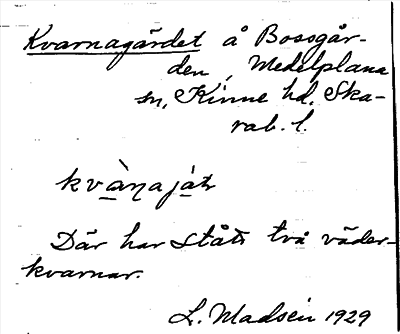 Kvarnagärdet å Bossgår-
den, Medelplana
sn, Kinne hd. Ska-
rab. l.
kvànajàt
Där har stått två väder-
kvarnar.
L. Madsén 1929